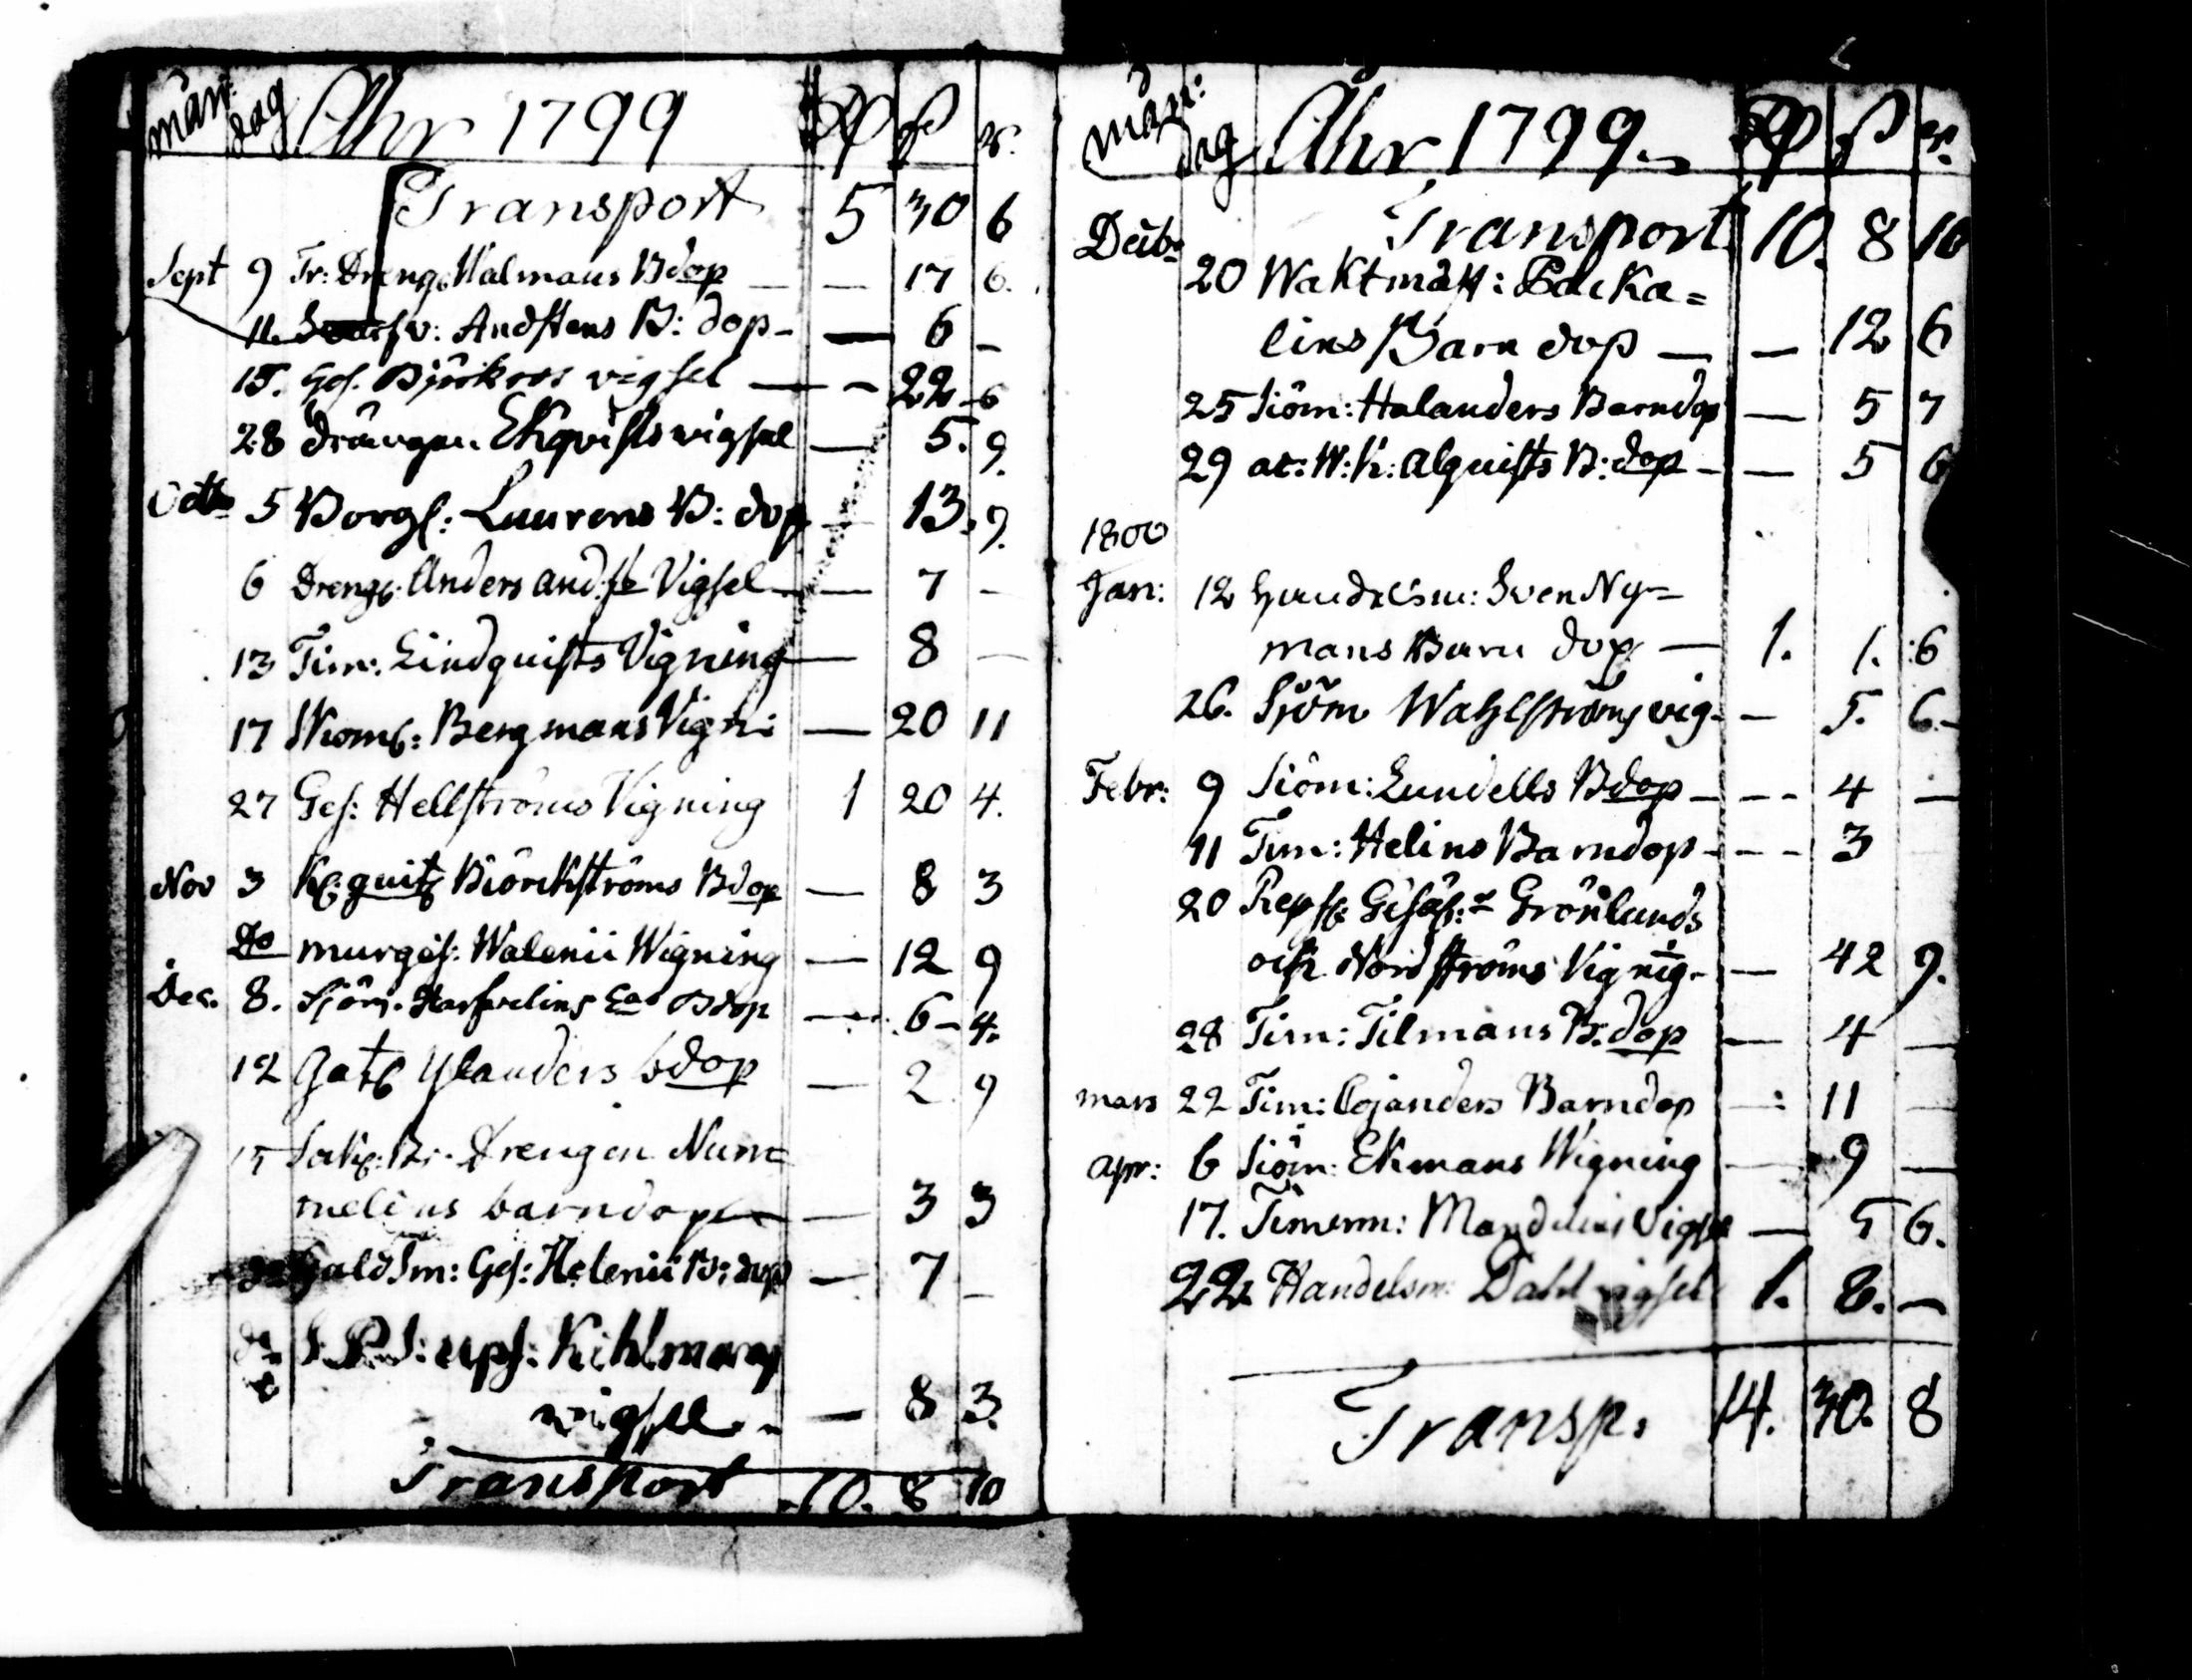 mån: dag Åhr 1799 Rd ß rs.
Transport 5 30 6
Sept 9 Tr: Dreng: Malmans Bdop — — 17 6.
11 Andstens B: dop — — 6 —
15. Ges. Björkroos vigsel — — 22 6
28 drängen Ekqvists wigsel — 5. 9.
Octb 5 Borgs: Laurens B: dop — 13. 9.
6 Drengs: Anders And:ss Vigsel — — 7 —
13 Tim: Lindquists Vigning — 8 —
17 Bergmans Vign: — 20 11
27 Ges: Hellströms Vigning 1 20 4.
Nov 3 Björckströms Bdop — 8 3
Do murges: Walenii Wigning — 12 9
Dec. 8. Sjöm. Bdop — 6 – 4.
12 Ylanders bdop — 2 9
15 Drengen Num=
melins barndop — — 3 3
Ges: Helenii B: dop — 7 —
Kihlmans
wigsel — — 8 3.
Transport 10. 8 10
mån: dag Åhr 1799 Rd ß rs.
Decbr Transport 10. 8 10
20 Waktmäst: Backa=
lins Barn dop — — 12 6
25 Siöm: Halanders Barndop — 5 7
29 at: W: K: Alquists B: dop — — 5 6
1800
Jan: 12 Handelsm: Sven Ny=
mans Barn dop — 1. 1. 6
26. Sjöm Wahlströms vig. — 5. 6.
Febr: 9 Siöm: Lundells Bdop — -- 4 —
11 Tim: Helins Barndop — -- 3
20 Grönlunds
och Nordströms Vignig. — 42 9.
28 Tim: Tilmans B: dop — 4 —
mars 22 Tim: Cojanders Barndop — 11 —
apr: 6 Siöm: Ekmans Wigning — 9 —
17. Timerm: Mandelins Vigsel — 5 6.
22. Handelsm: Dahl vigsel 1. 8. —
Transp. 14. 30. 8